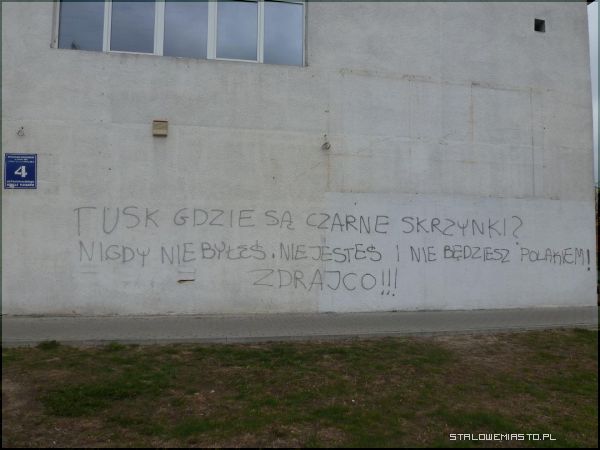 4
TUSK GDZIE SĄ CZARNE SKRZYNKI?
NIGDY NIE BYŁEŚ, NIE JESTEŚ I NIE BĘDZIESZ POLAKIEM!
ZDRAJCO!!!
STALOWEMIASTO.PL